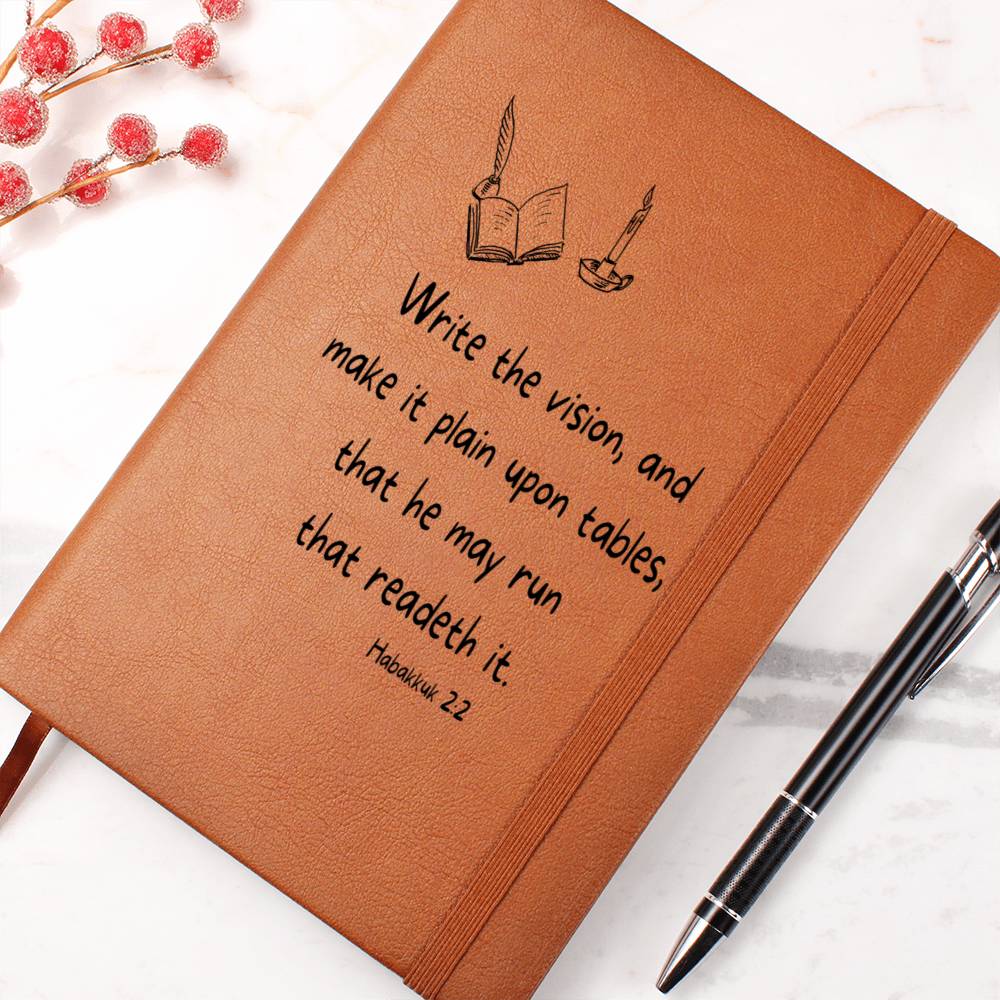 Write the vision, and
make it plain upon tables,
that he may run
that readeth it.
Habakkuk 2:2